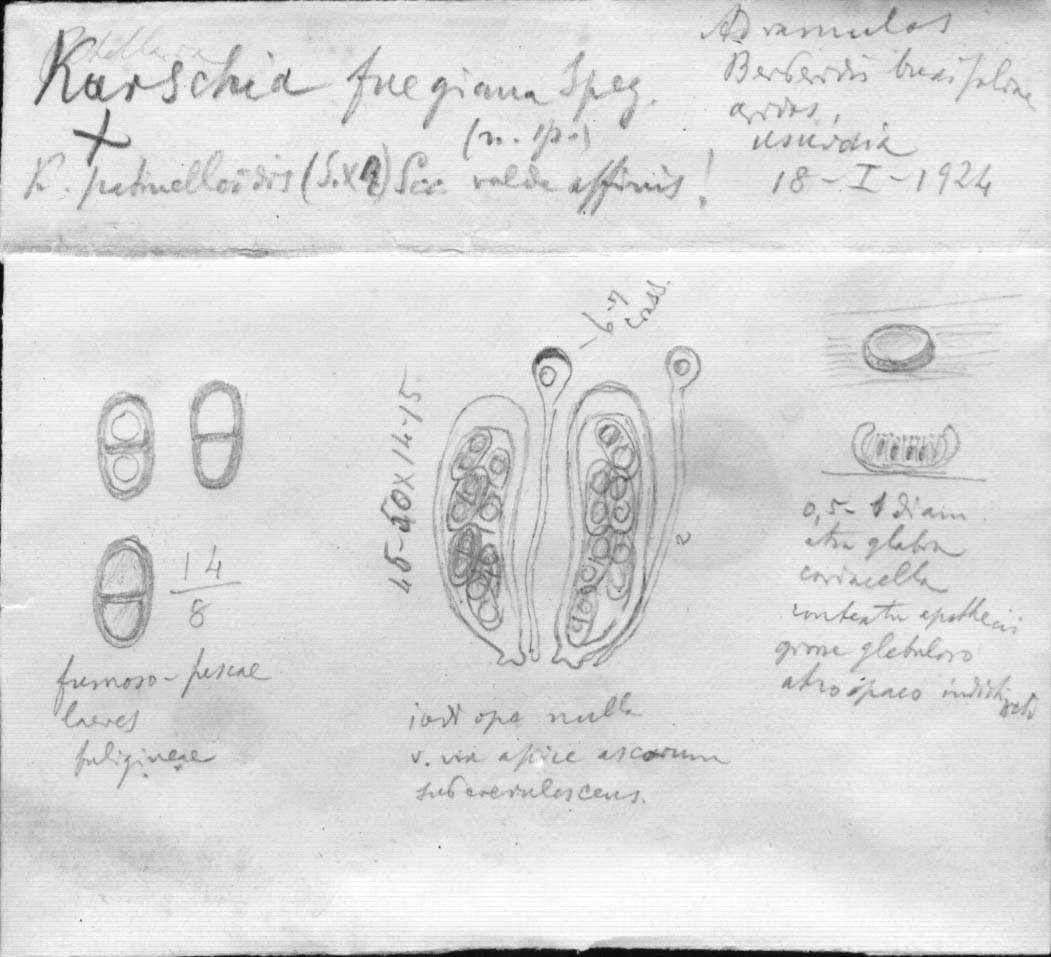 Karschia fuegiana Speg.
(n. sp.)
K. patinelloidis (S. x R) Scc valde affinis!
Ad ramulos
Berberidis buxifoliae
aridos,
Usuaia
18-I-1924
6-7
crass.
45-50 x 14-15
14
8
2
fumoso-fuscae
laeves
fuligineae
iodi ope nulla
v. vix apice ascorum
subcoerulescens.
0,5-1 diam
atra glabra
coriacella
contextu apothecii
grosse globuloso
atro opaco